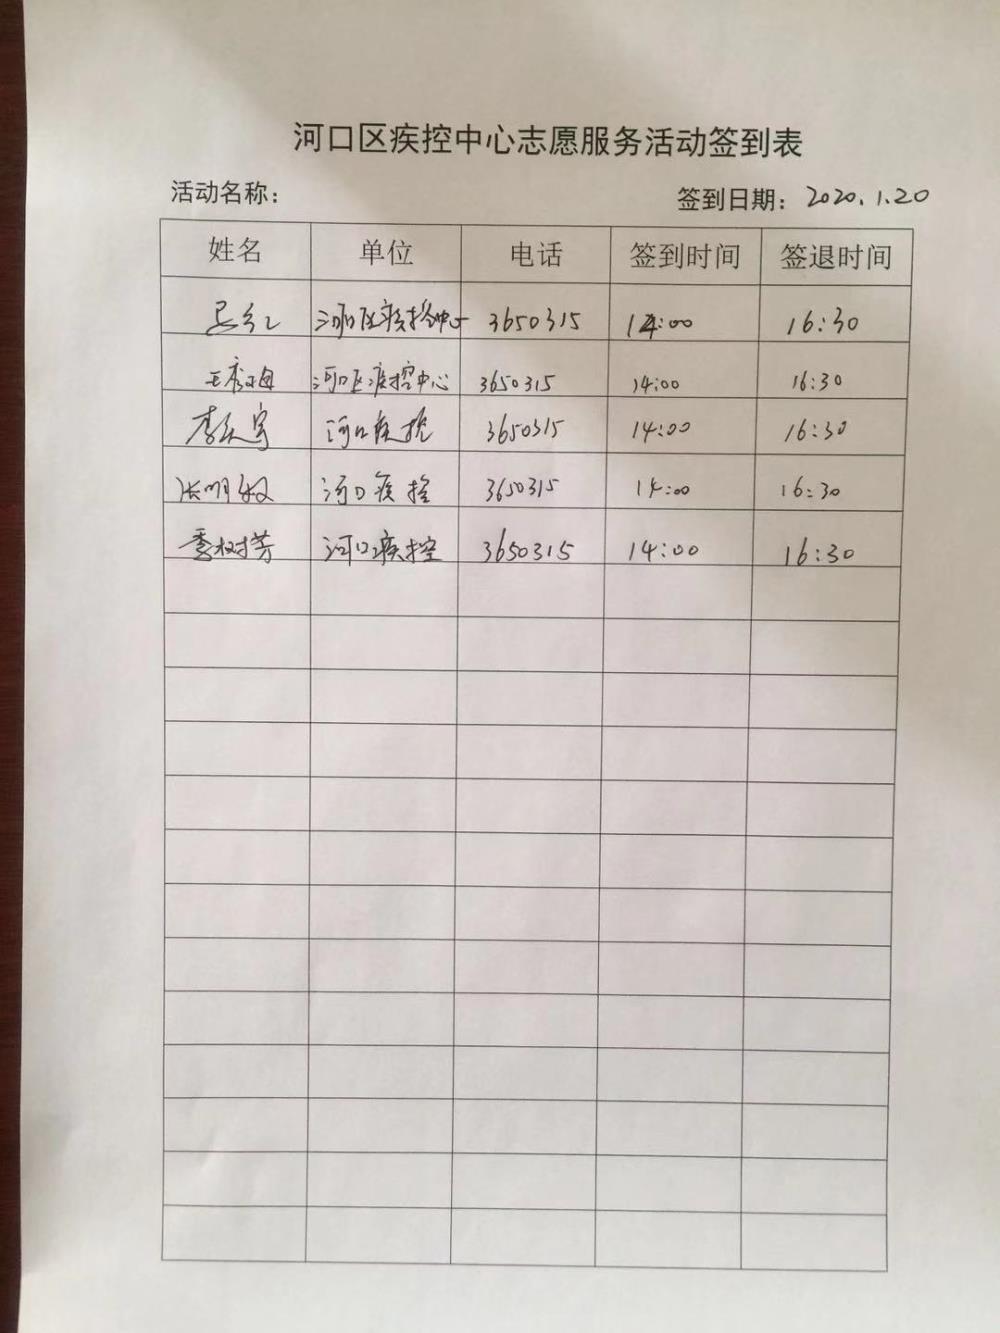 河口区疾控中心志愿服务活动签到表
活动名称： 签到日期：2020.1.20
姓名 单位 电话 签到时间 签退时间
河口区疾控中心 3650315 14:00 16:30
王秀梅 河口区疾控中心 3650315 14:00 16:30
河口疾控 3650315 14:00 16:30
张明敏 河口疾控 3650315 14:00 16:30
季树芳 河口疾控 3650315 14:00 16:30